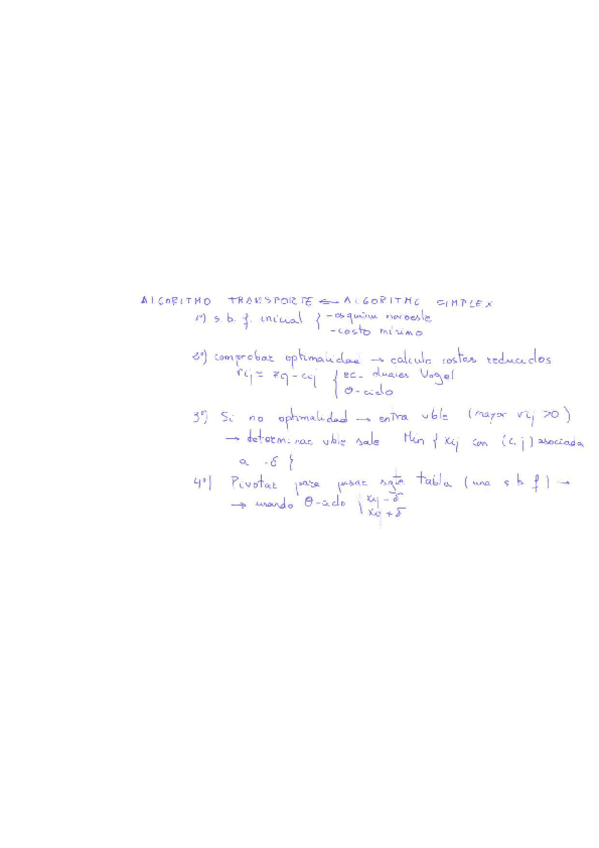 ALGORITMO TRANSPORTE ⇐ ALGORITMO SIMPLEX
1º) s.b.f. inicial { -esquina noroeste
-costo mínimo
2º) comprobar optimalidad → calculo costes reducidos
rij = zij - cij { ec. duales Vogel
θ-ciclo
3º) Si no optimalidad → entra vble (mayor rij >0)
→ determinar vble sale Min { xij con (i,j) asociada
a -δ }
4º) Pivotar para pasar sgte tabla (una s b f) →
→ usando θ-ciclo { xij - δ
xij + δ